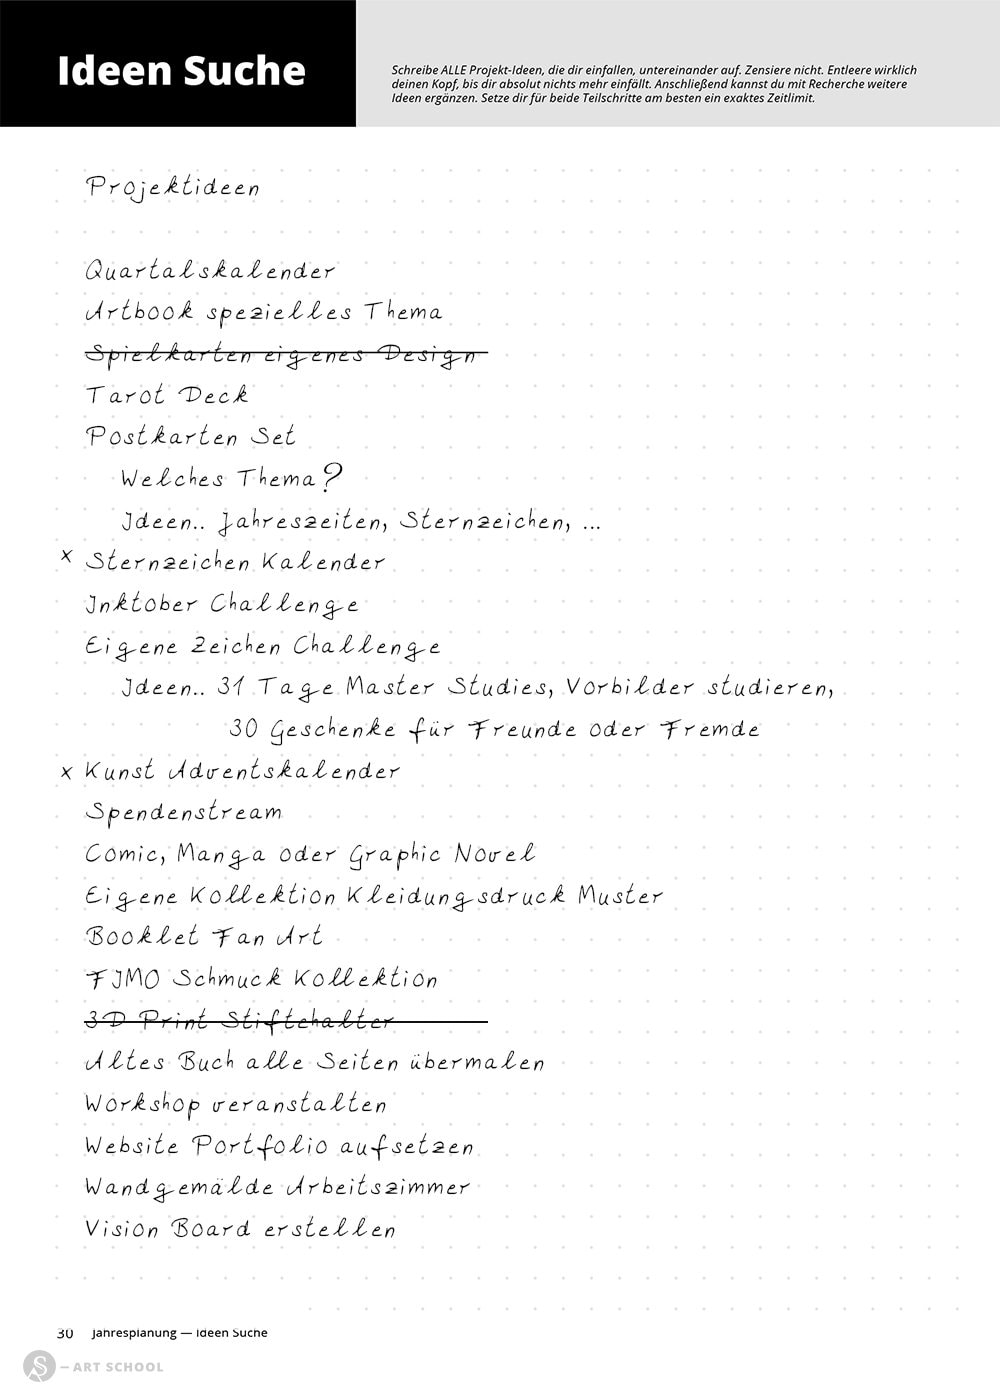 Ideen Suche
Schreibe ALLE Projekt-Ideen, die dir einfallen, untereinander auf. Zensiere nicht. Entleere wirklich
deinen Kopf, bis dir absolut nichts mehr einfällt. Anschließend kannst du mit Recherche weitere
Ideen ergänzen. Setze dir für beide Teilschritte am besten ein exaktes Zeitlimit.
Projektideen
Quartalskalender
Artbook spezielles Thema
Spielkarten eigenes Design
Tarot Deck
Postkarten Set
Welches Thema?
Ideen.. Jahreszeiten, Sternzeichen, ...
x Sternzeichen Kalender
Inktober Challenge
Eigene Zeichen Challenge
Ideen.. 31 Tage Master Studies, Vorbilder studieren,
30 Geschenke für Freunde oder Fremde
x Kunst Adventskalender
Spendenstream
Comic, Manga oder Graphic Novel
Eigene Kollektion Kleidungsdruck Muster
Booklet Fan Art
FIMO Schmuck Kollektion
3D Print Stiftehalter
Altes Buch alle Seiten übermalen
Workshop veranstalten
Website Portfolio aufsetzen
Wandgemälde Arbeitszimmer
Vision Board erstellen
30 Jahresplanung — Ideen Suche
S – ART SCHOOL